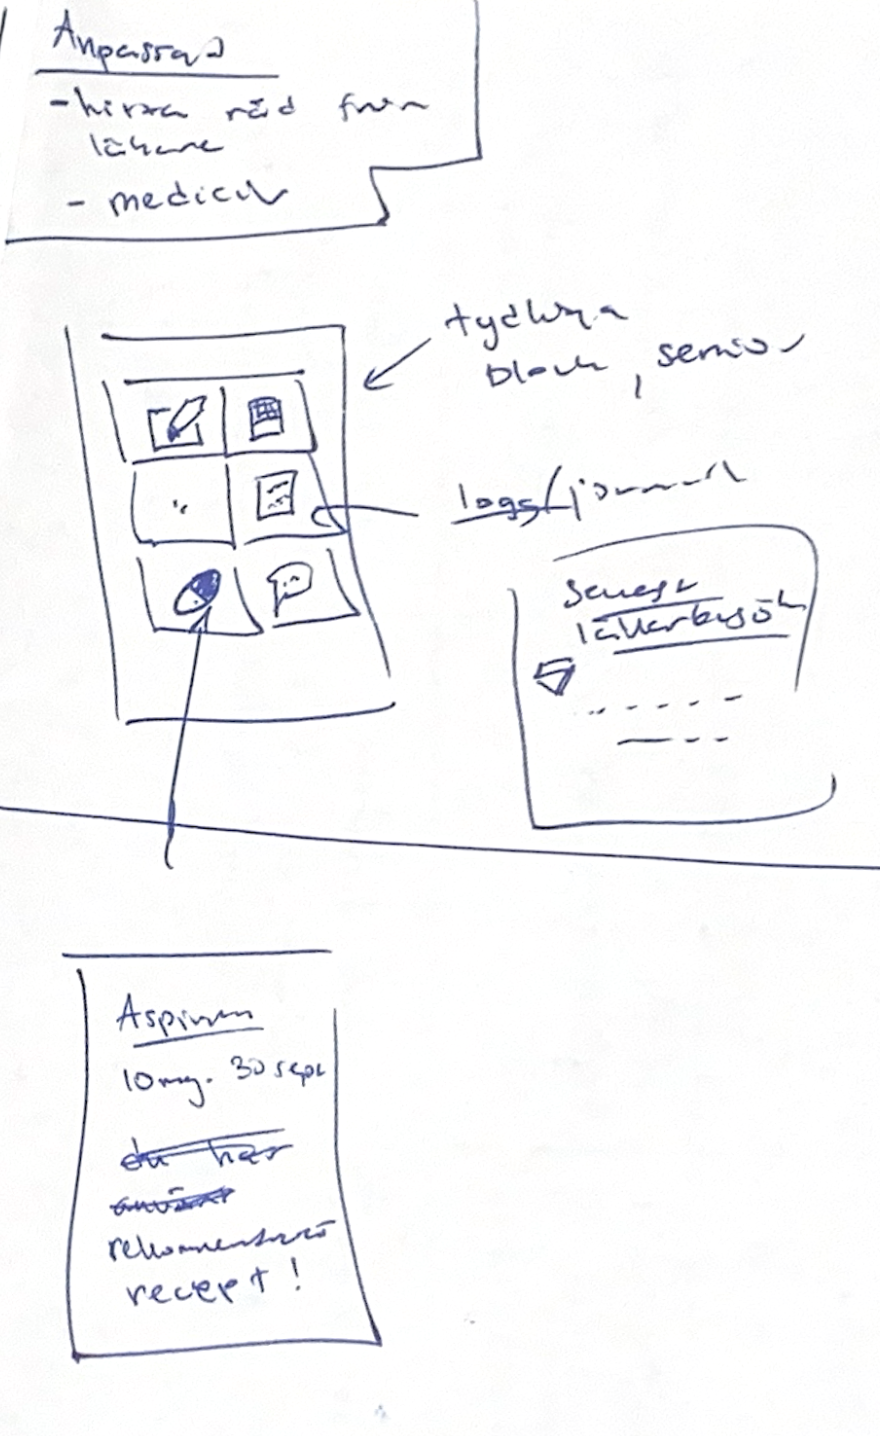 Anpassad
- hitta råd från
läkare
- medicin
tydliga
block, senior
logs/journal
Senest
läkarbesök
Aspirin
10mg. 30 sept
du har
använt
rekommenderad
recept!